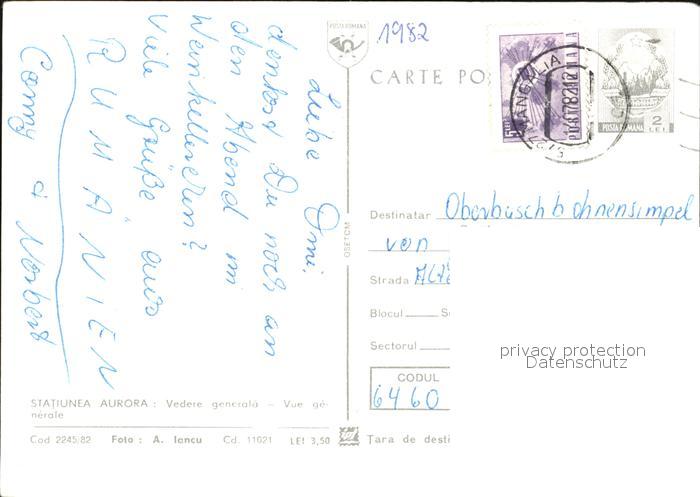 Liebe Omi.
denkst Du noch an
den Abend im
Weinkellerchen?
Viele Grüße aus
RUMÄNIEN
Conny & Norbert
STAȚIUNEA AURORA : Vedere generală – Vue gé-
nérale
Cod 2245/82 Foto : A. Iancu Cd. 11021 LEI 3,50
OSETCM
POSTA ROMANA
1982
CARTE PO
POSTA ROMANA 2 LEI
MANGALIA
Destinatar Oberbüschbohnensimpel
von
Strada
Blocul
Sectorul
CODUL
6460
Țara de desti
privacy protection
Datenschutz